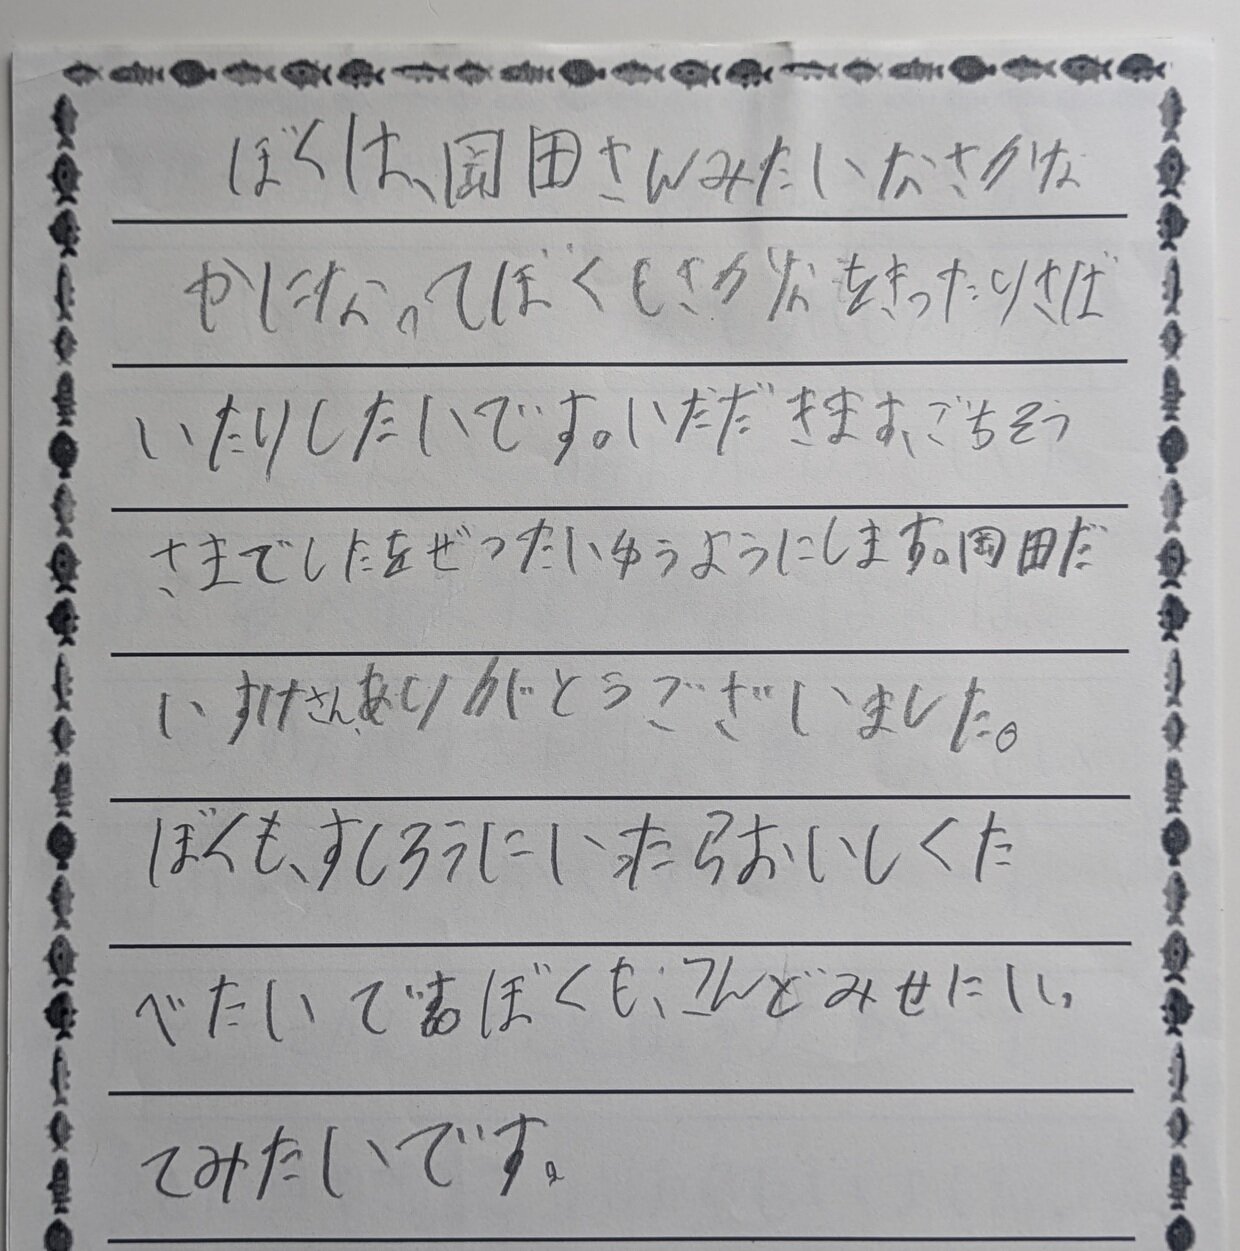 ぼくは、岡田さんみたいなさかな
かになってぼくもさかなをきったりさば
いたりしたいです。いだだきます、ごちそう
さまでしたをぜったいゆうようにします。岡田だ
いすけさん、ありがとうございました。
ぼくも、すしろうにいったらおいしくた
べたいです。ぼくも、こんどみせにいっ
てみたいです。